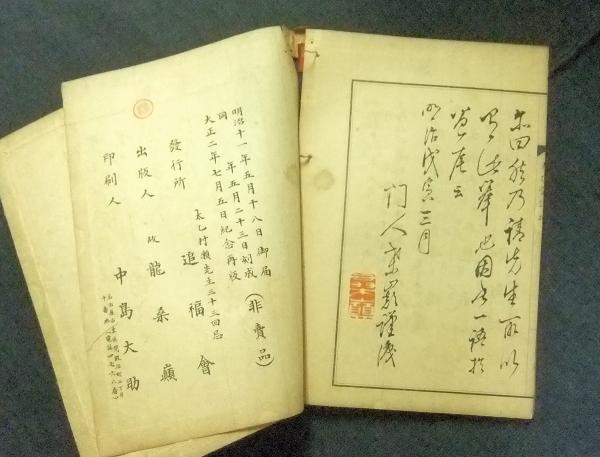 亦曰然乃請先生所以
有此挙也因書一語於
巻尾云
明治戊寅三月
門人 謹識
明治十一年五月十八日御届
同 年五月二十三日刻成
大正二年七月五日紀念再版
(非賣品)
太乙村瀬先生三十三回忌
發行所 追福會
出版人 故 龍桑巓
印刷人 中島大助